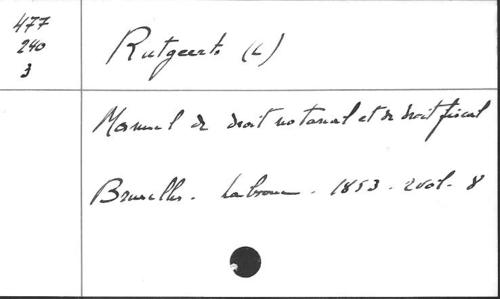 477
240
3
Rutgeerts (L)
Manuel de droit notarial et de droit fiscal
Bruxelles - Labroue - 1853 - 2 vol - 8